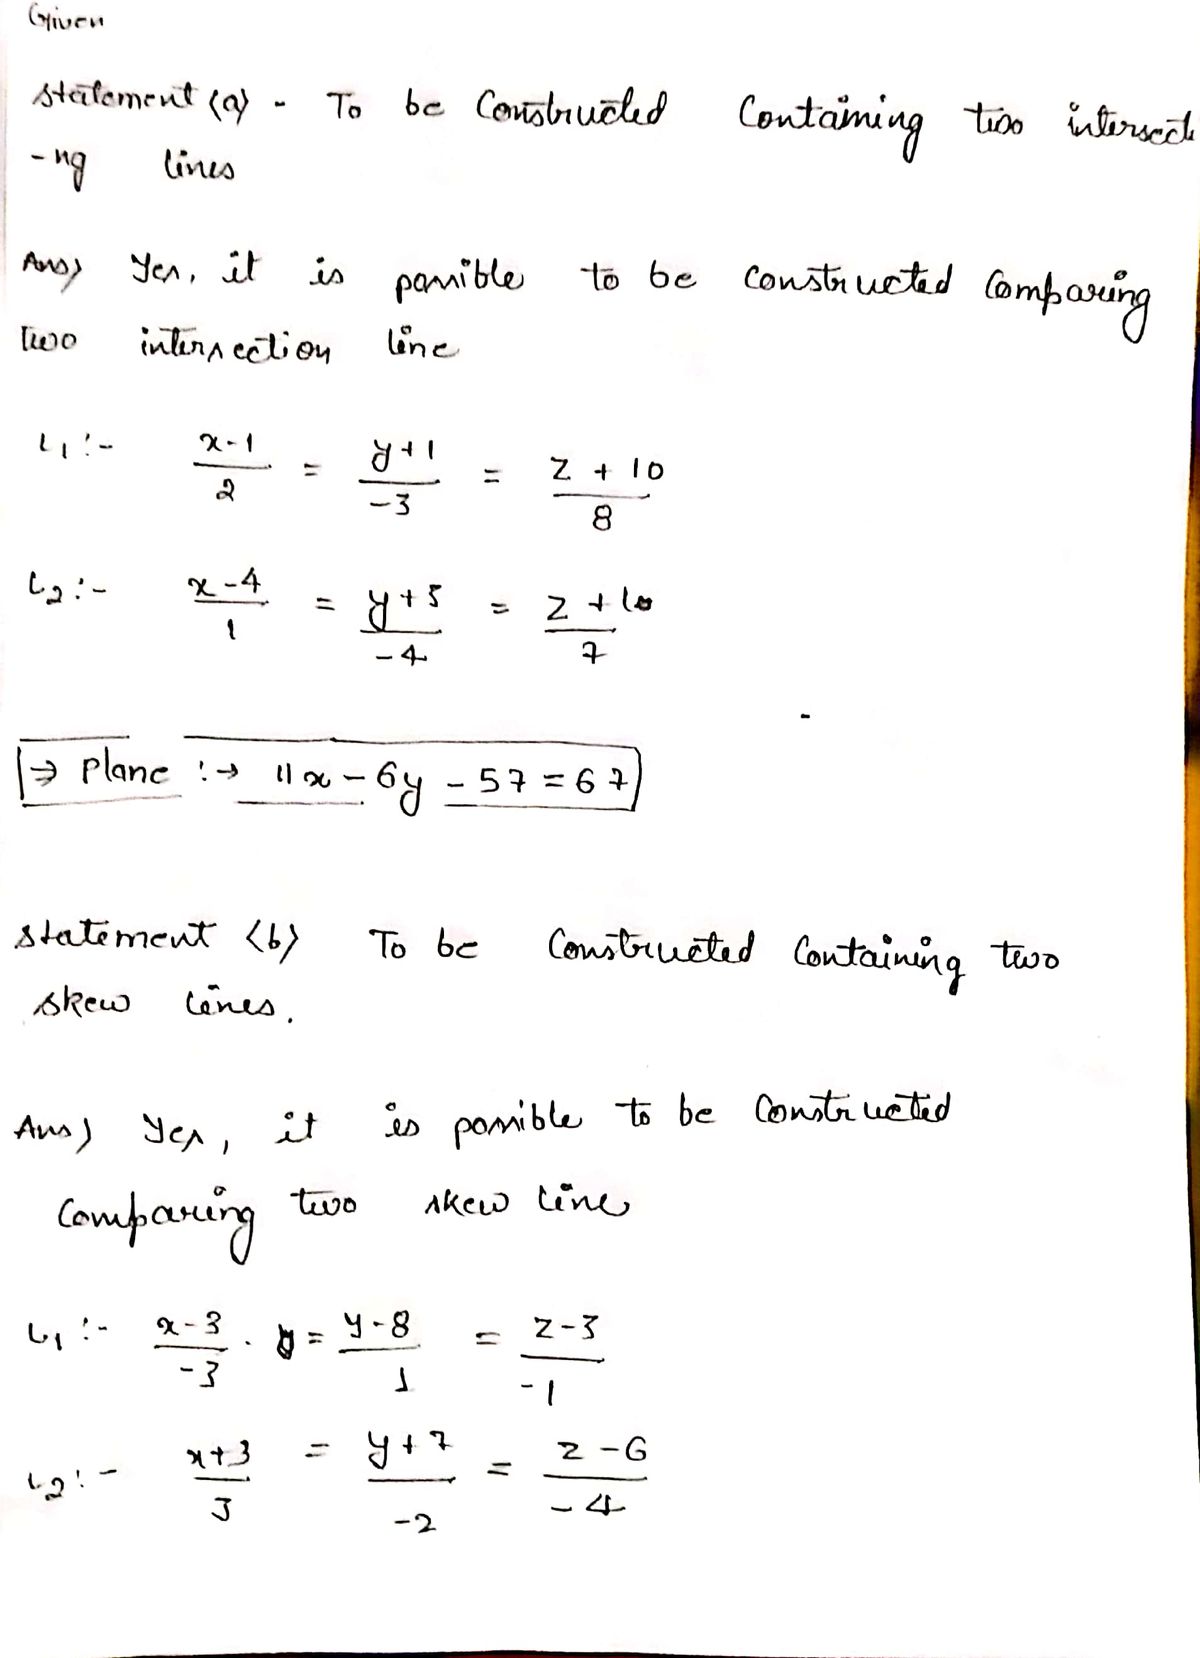 Given
statement (a) - To be Constructed Containing two intersecti
-ng lines
Ans) Yes, it is possible to be constructed Comparing
Two intersection line
L₁ :- x-1/2 = y+1/-3 = z+10/8
L₂ :- x-4/1 = y+5/-4 = z+10/7
⇒ Plane :→ 11x - 6y - 57 = 67
statement <b> To be Constructed Containing two
skew lines.
Ans) Yes, it is possible to be Constructed
Comparing two skew line
L₁ :- x-3/-3 . = y-8/1 = z-3/-1
L₂ :- x+3/3 = y+7/-2 = z-6/-4